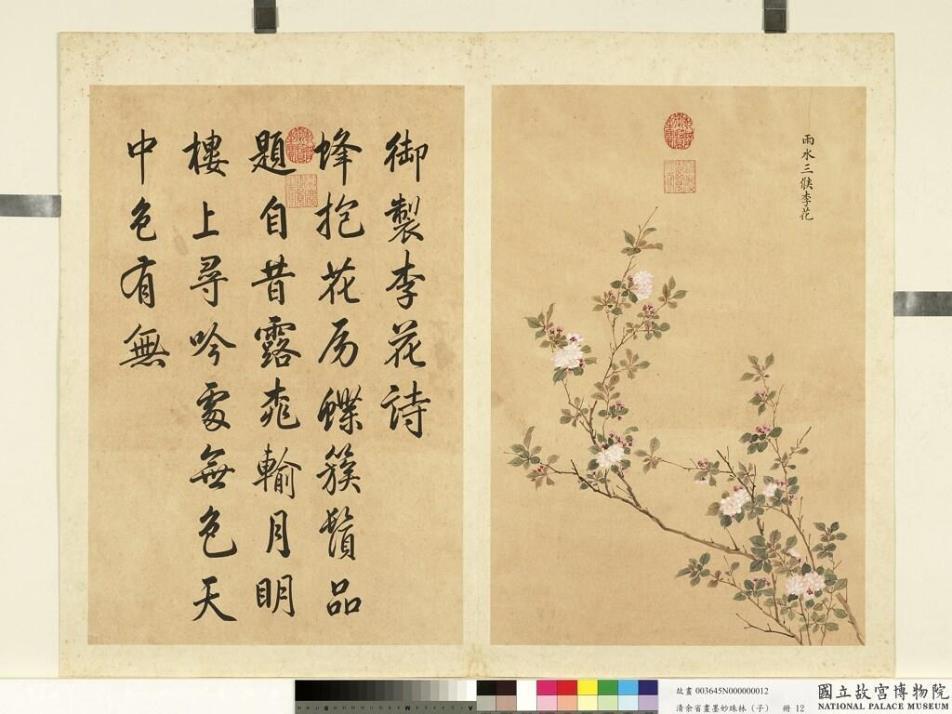 雨水三候李花
御製李花詩
蜂抱花房蝶簇鬚品
題自昔露桃輸月明
樓上尋吟處無色天
中色有無
故畫 003645N000000012
清余省畫墨妙珠林（子） 冊 12
國立故宮博物院
NATIONAL PALACE MUSEUM